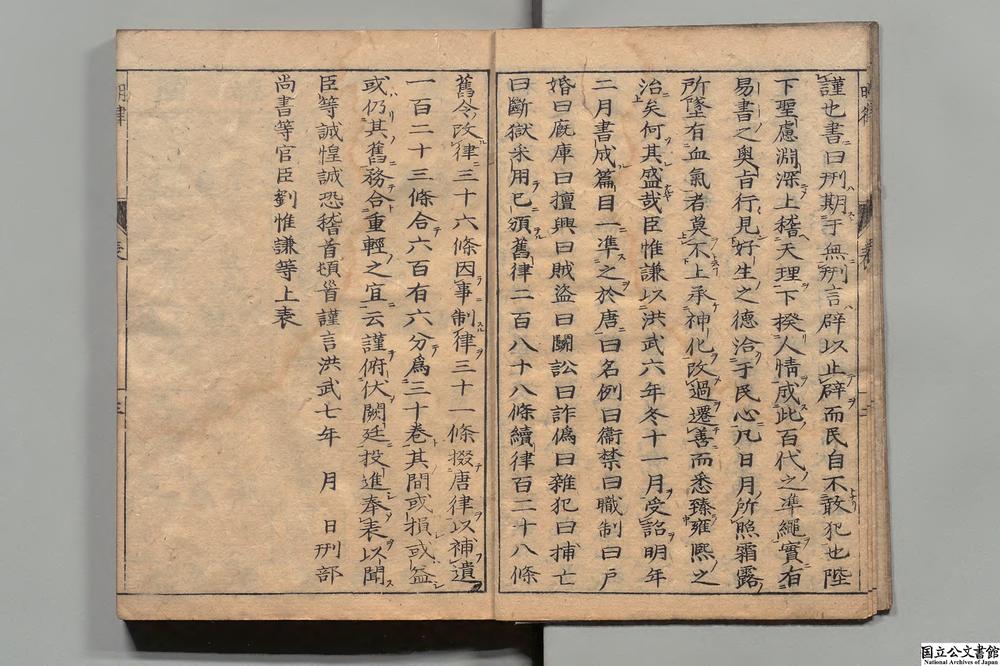 謹也書曰刑期于無刑言辟以止辟而民自不敢犯也陛
下聖慮淵深上稽天理下揆人情成此百代之準繩實有
易書之奧旨行見好生之德洽于民心凡日月所照霜露
所墜有血氣者莫不上承神化改過遷善而悉臻雍熙之
治矣何其盛哉臣惟謙以洪武六年冬十一月受詔明年
二月書成篇目一準之於唐曰名例曰衞禁曰職制曰戶
婚曰廐庫曰擅興曰賊盜曰鬭訟曰詐僞曰雜犯曰捕亡
曰斷獄采用已頒舊律二百八十八條續律百二十八條
舊令改律三十六條因事制律三十一條掇唐律以補遺
一百二十三條合六百有六分爲三十卷其間或損或益
或仍其舊務合重輕之宜云謹俯伏闕廷投進奉表以聞
臣等誠惶誠恐稽首頓首謹言洪武七年 月 日刑部
尚書等官臣劉惟謙等上表
明律
表
三
国立公文書館
National Archives of Japan